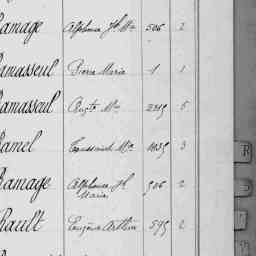 Ramage Alphonse Jh Mie 506 2
Ramasseul Pierre Marie 1 1
Ramasseul Auguste Mie 2319 5
Ramel Toussaint Mie 1039 3
Ramage Alphonse Jh Marie 506 2
Rault Eugène Arthur 579 2
R
S